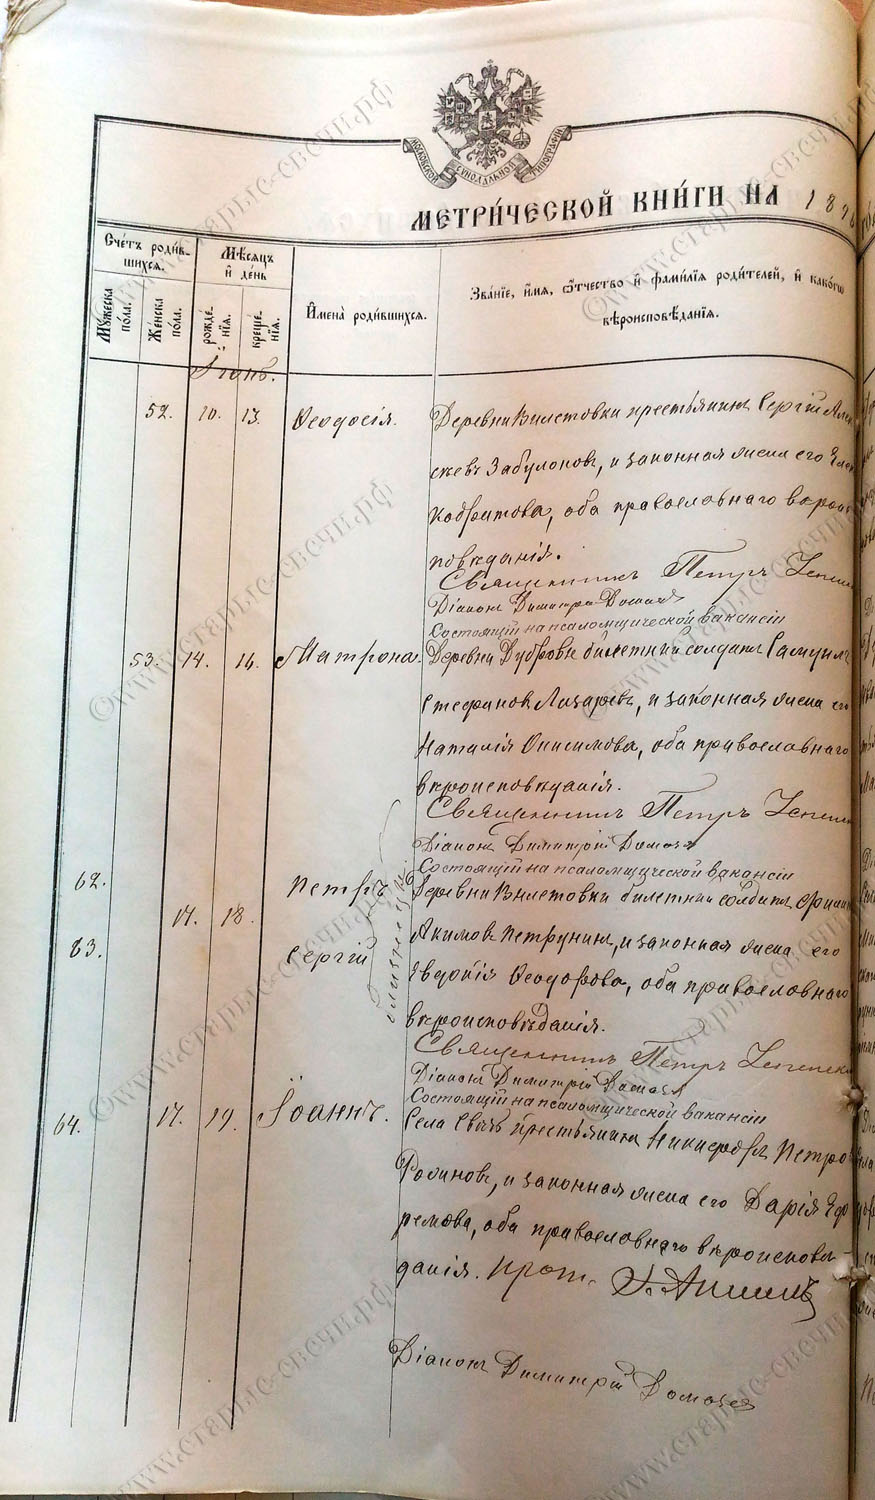 МОСКОВСКОЙ СѴНОДАЛЬНОЙ ТИПОГРАФІИ
МЕТРИ́ЧЕСКОЙ КНИ́ГИ НА 189
Сче́тъ роди́в-
шихся.
Му́жеска
по́ла.
Же́нска
по́ла.
Мѣ́сяцъ
и҆ де́нь
рожде́-
нїѧ.
креще́-
нїѧ.
И҆мена̀ роди́вшихся.
Зва́нїе, и҆́мя, ѻ҆́тчество и҆ фами́лїѧ роди́телей, и҆ како́гѡ
вѣроисповѣ́данїѧ.
Іюнь.
52. 10. 13. Ѳеодосія. Деревни Вилетовки крестьянинъ Сергій Алек
сѣевъ Забулоновъ, и законная жена его
оба православнаго вѣрои
повѣданія.
Священникъ Петръ
Діаконъ Димитрій
Состоящій на псаломщической вакансіи
53. 14. 16. Матрона. Деревни Дубровки билетный солдатъ Самуилъ
Стефановъ Лазаревъ, и законная жена его
Наталія Онисимова, оба православнаго
вѣроисповѣданія.
Священникъ Петръ
Діаконъ Димитрій
Состоящій на псаломщической вакансіи
62. Петръ Деревни Вилетовки билетный солдатъ
17. 18.
63. Сергій близнецы. Акимовъ Петрунинъ, и законная жена его
Евдокія Ѳеодорова, оба православнаго
вѣроисповѣданія.
Священникъ Петръ
Діаконъ Димитрій
Состоящій на псаломщической вакансіи
64. 17. 19. Іоаннъ. Села крестьянинъ Никифоръ Петро
Родинъ, и законная жена его Дарія Еф
ремова, оба православнаго вѣроисповѣ-
данія. Прот.
Діаконъ Димитрій
©www.старые-свечи.рф